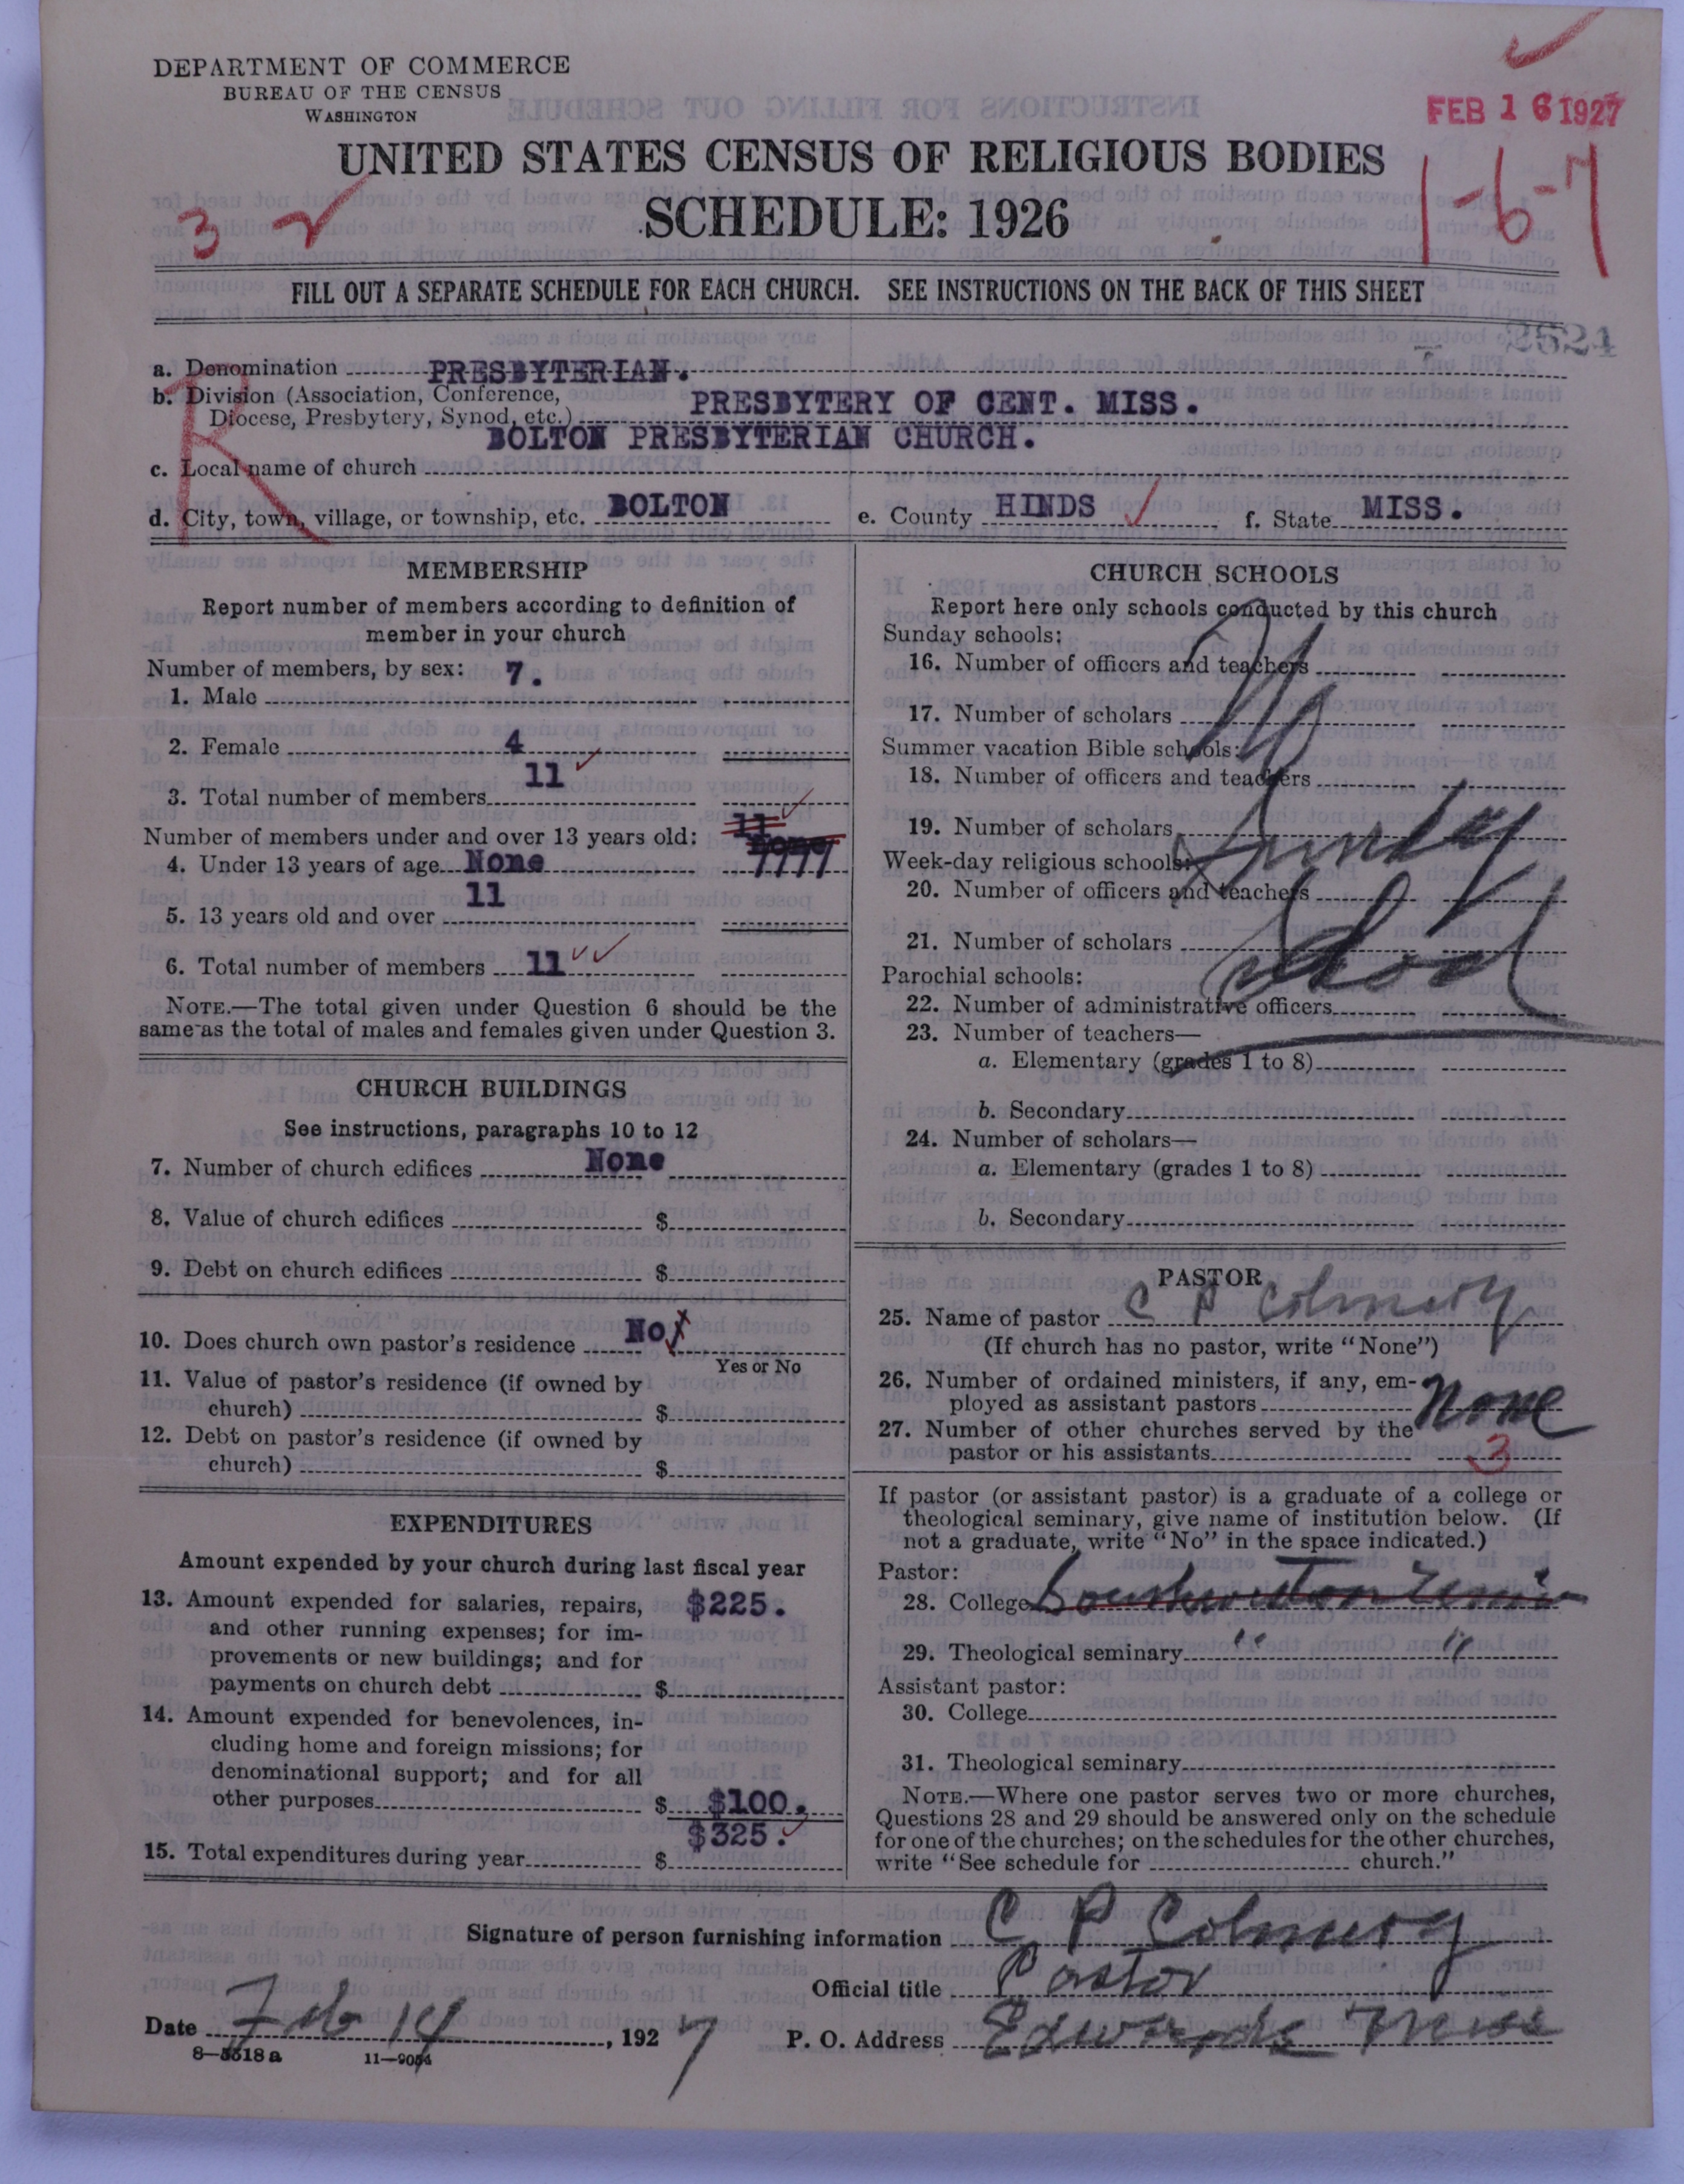 DEPARTMENT OF COMMERCE
BUREAU OF THE CENSUS
WASHINGTON
FEB 16 1927
UNITED STATES CENSUS OF RELIGIOUS BODIES
SCHEDULE: 1926
3
1-6-7
FILL OUT A SEPARATE SCHEDULE FOR EACH CHURCH. SEE INSTRUCTIONS ON THE BACK OF THIS SHEET
2524
R
a. Denomination PRESBYTERIAN.
b. Division (Association, Conference, Diocese, Presbytery, Synod, etc.) PRESBYTERY OF CENT. MISS.
BOLTON PRESBYTERIAN CHURCH.
c. Local name of church
d. City, town, village, or township, etc. BOLTON e. County HINDS f. State MISS.
MEMBERSHIP
Report number of members according to definition of
member in your church
Number of members, by sex:
1. Male 7.
2. Female 4
3. Total number of members 11
Number of members under and over 13 years old:
11
None
4. Under 13 years of age None
5. 13 years old and over 11
6. Total number of members 11
NOTE.—The total given under Question 6 should be the
same as the total of males and females given under Question 3.
CHURCH BUILDINGS
See instructions, paragraphs 10 to 12
7. Number of church edifices None
8. Value of church edifices $
9. Debt on church edifices $
10. Does church own pastor's residence No
Yes or No
11. Value of pastor's residence (if owned by
church) $
12. Debt on pastor's residence (if owned by
church) $
EXPENDITURES
Amount expended by your church during last fiscal year
13. Amount expended for salaries, repairs, $225.
and other running expenses; for im-
provements or new buildings; and for
payments on church debt $
14. Amount expended for benevolences, in-
cluding home and foreign missions; for
denominational support; and for all
other purposes $ $100.
$325.
15. Total expenditures during year $
CHURCH SCHOOLS
Report here only schools conducted by this church
Sunday schools:
16. Number of officers and teachers
17. Number of scholars
Summer vacation Bible schools:
18. Number of officers and teachers
19. Number of scholars
Week-day religious schools:
20. Number of officers and teachers
21. Number of scholars
Parochial schools:
22. Number of administrative officers
23. Number of teachers—
a. Elementary (grades 1 to 8)
b. Secondary
24. Number of scholars—
a. Elementary (grades 1 to 8)
b. Secondary
No
Sunday
School
PASTOR
25. Name of pastor C P Colmery
(If church has no pastor, write "None")
26. Number of ordained ministers, if any, em-
ployed as assistant pastors None
27. Number of other churches served by the
pastor or his assistants 3
If pastor (or assistant pastor) is a graduate of a college or
theological seminary, give name of institution below. (If
not a graduate, write "No" in the space indicated.)
Pastor:
28. College
29. Theological seminary " "
Assistant pastor:
30. College
31. Theological seminary
NOTE.—Where one pastor serves two or more churches,
Questions 28 and 29 should be answered only on the schedule
for one of the churches; on the schedules for the other churches,
write "See schedule for church."
Signature of person furnishing information C P Colmery
Official title Pastor
Date Feb 14, 1927 P. O. Address Edwards Miss
8—5518a 11—9054